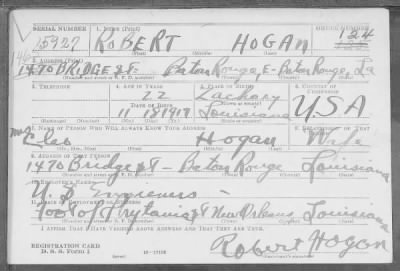 SERIAL NUMBER 1. NAME (Print) ORDER NUMBER
ROBERT HOGAN 124
(First) (Middle) (Last)
2. ADDRESS (Print)
1470 BRIDGE St. Baton Rouge, E- Baton Rouge, La
3. TELEPHONE 4. AGE IN YEARS 5. PLACE OF BIRTH 6. COUNTRY OF CITIZENSHIP
22 Zachary
DATE OF BIRTH U.S.A
Louisiana
7. NAME OF PERSON WHO WILL ALWAYS KNOW YOUR ADDRESS 8. RELATIONSHIP OF THAT PERSON
Mrs Cleo Hogan Wife
9. ADDRESS OF THAT PERSON
1470 Bridge St - Baton Rouge Louisiana
10. EMPLOYER'S NAME
U.S Engineers -
11. PLACE OF EMPLOYMENT OR BUSINESS
Foot of Prytania St New Orleans, Louisiana
I AFFIRM THAT I HAVE VERIFIED ABOVE ANSWERS AND THAT THEY ARE TRUE.
REGISTRATION CARD
D. S. S. Form 1
Robert Hogan